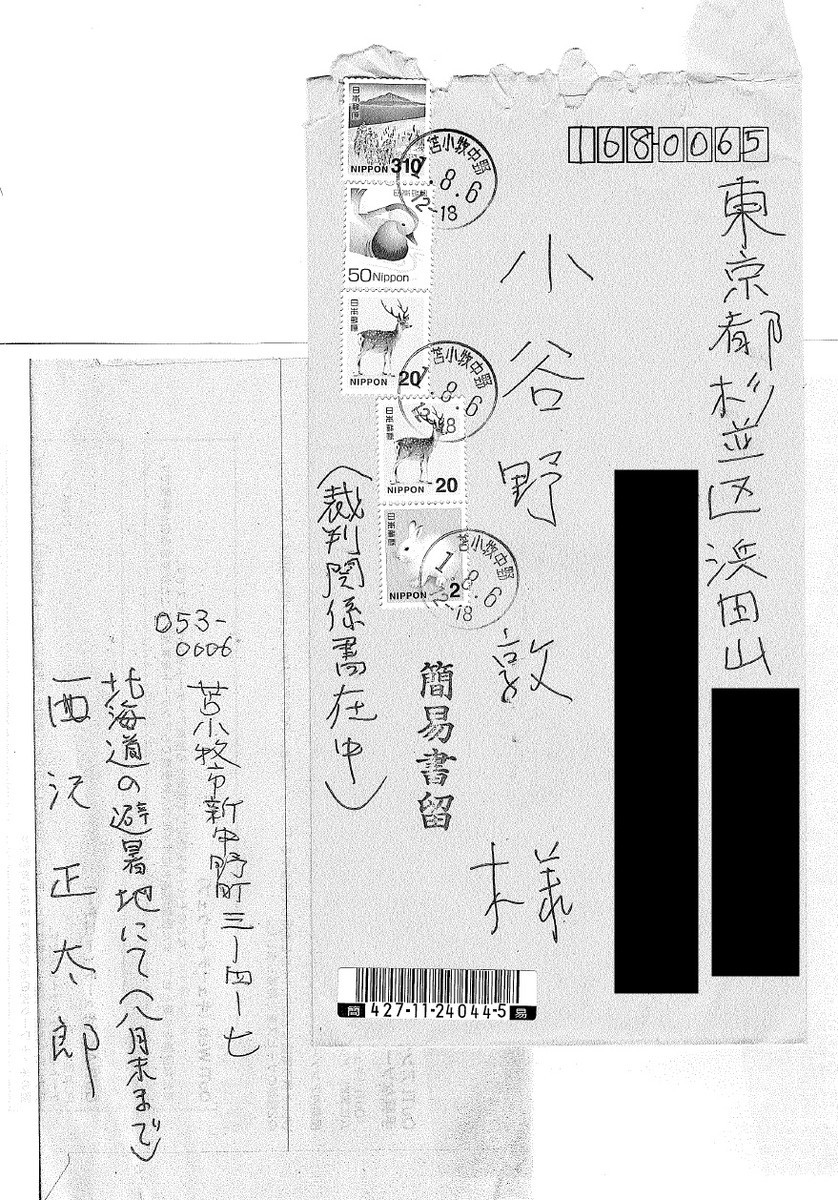 168-0065
東京都杉並区浜田山
小谷野敦様
簡易書留
(裁判関係書在中)
日本郵便
NIPPON 310
日本郵便
50Nippon
日本郵便
NIPPON 20
日本郵便
NIPPON 20
日本郵便
NIPPON 2
苫小牧中野
1.8.6
12-18
苫小牧中野
1.8.6
12-18
苫小牧中野
1.8.6
12-18
簡 427-11-24044-5 易
053-
0006
苫小牧市新中野町三ー四ー七
北海道の避暑地にて(八月末まで)
西沢正太郎